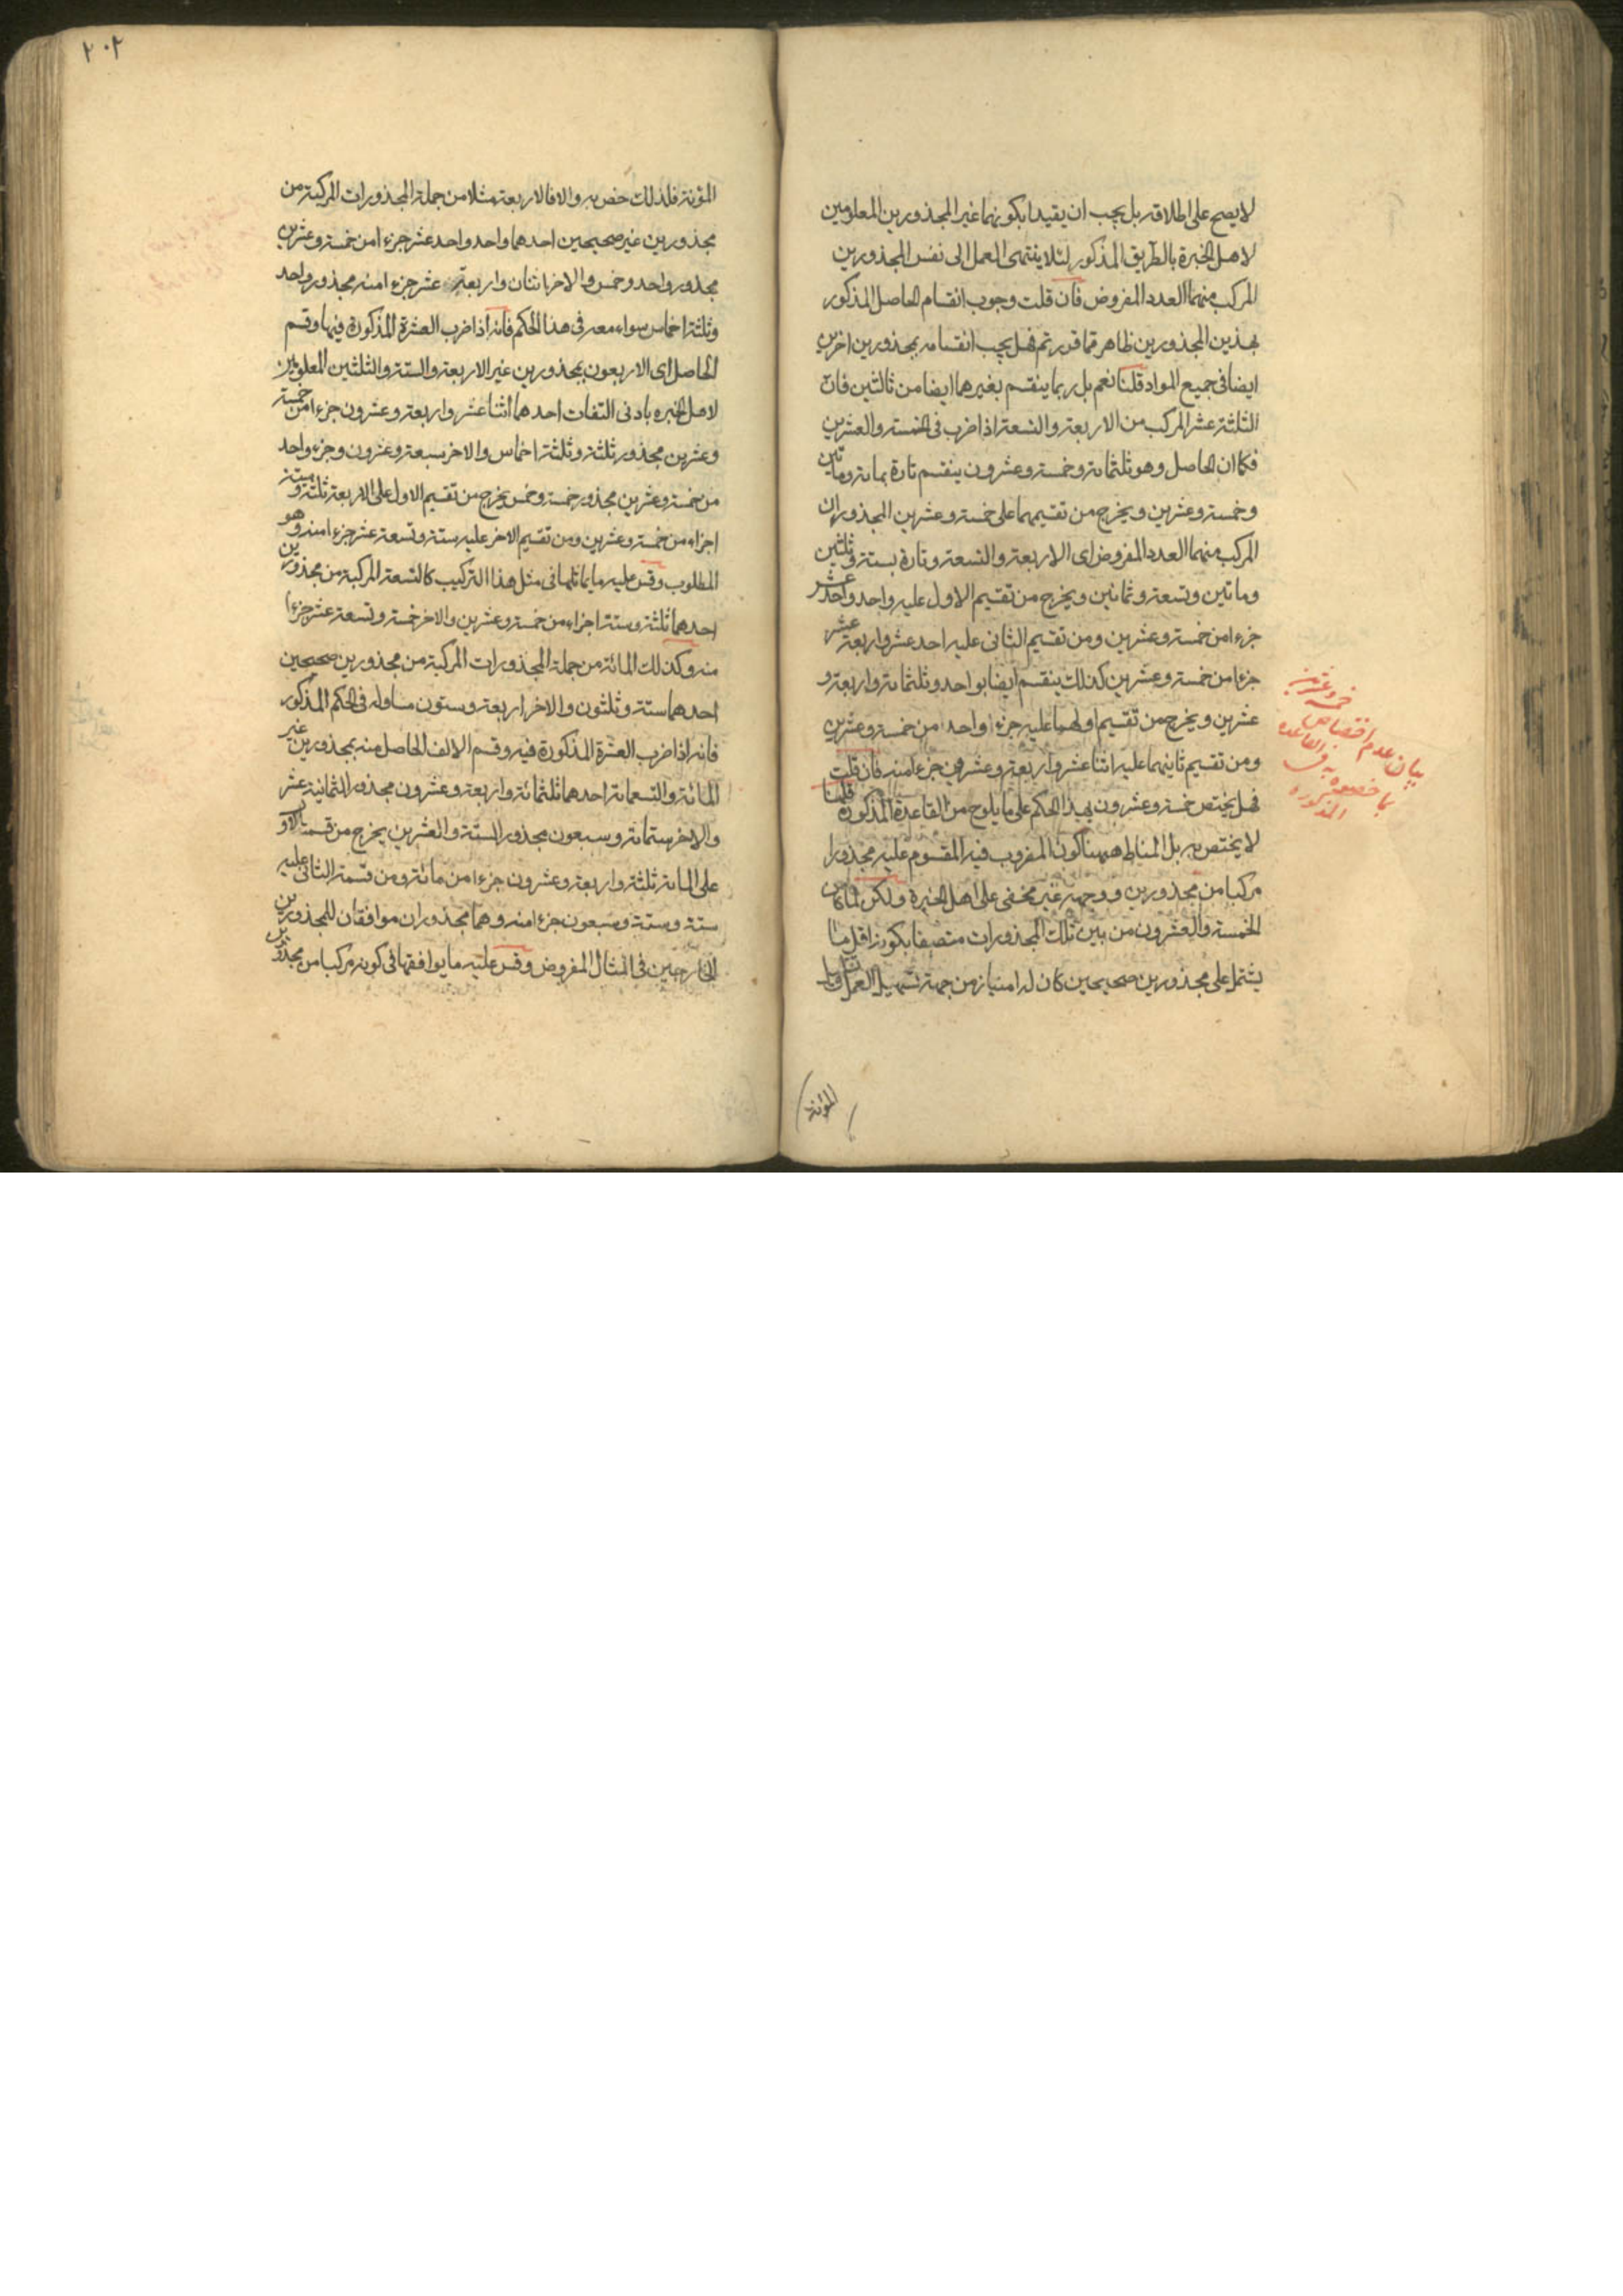 لا يصح على اطلاقه بل يجب ان يقيدا بكونهما غير المجذورين المعلومين
لاهل الخبرة بالطريق المذكور لئلا ينتهى العمل الى نفس المجذورين
المركب منهما العدد المفروض فان قلت وجوب انقسام الحاصل المذكور
بهذين المجذورين ظاهر مما قررتم فهل يجب انقسامه بمجذورين اخرين
ايضا فى جميع المواد قلنا نعم بل ربما ينقسم بغيرهما ايضا من ثالثين فان
الثلثة عشر المركب من الاربعة والتسعة اذا ضرب فى الخمسة والعشرين
فكما ان الحاصل وهو ثلثمائة وخمسة وعشرون ينقسم تارة بمائة ومأتين
وخمسة وعشرين ويخرج من تقسيمهما على خمسة وعشرين المجذوران
المركب منهما العدد المفروض اى الاربعة والتسعة وتارة بستة وثلثين
ومأتين وتسعة وثمانين ويخرج من تقسيم الاول عليه واحد واحد عشر
جزءا من خمسة وعشرين ومن تقسيم الثانى عليه احد عشر واربعة عشر
جزءا من خمسة وعشرين كذلك ينقسم ايضا بواحد وثلثمائة واربعة و
عشرين ويخرج من تقسيم اولهما عليه جزء واحد من خمسة وعشرين
ومن تقسيم ثانيهما عليه اثنا عشر واربعة وعشرون جزءا منه فان قلت
فهل يختص خمسة وعشرون بهذا الحكم على ما يلوح من القاعدة المذكورة قلنا
لا يختص به بل المناط ههنا كون المضروب فيه المقسوم عليه مجذورا
مركبا من مجذورين ووجهه غير مخفى على اهل الخبرة ولكن لما كان
الخمسة والعشرون من بين تلك المجذورات متصفا بكونه اقل ما
يشتمل على مجذورين صحيحين كان له امتياز من جهة تسهيل العمل وتقليل
المؤنة
بيان عدم اختصاص خمسة وعشرين
بما خصصه به فى القاعدة
المذكورة
٢٠٢
المؤنة فلذلك خص به والا فالاربعة مثلا من جملة المجذورات المركبة من
مجذورين غير صحيحين احدهما واحد واحد عشر جزءا من خمسة وعشرين
مجذور واحد وخمس والاخر اثنان واربعة عشر جزءا منه مجذور واحد
وثلثة اخماس سواء معه فى هذا الحكم فانه اذا ضرب العشرة المذكورة فيها وقسم
الحاصل اى الاربعون بمجذورين غير الاربعة والستة والثلثين المعلومين
لاهل الخبرة بادنى التفات احدهما اثنا عشر واربعة وعشرون جزءا من خمسة
وعشرين مجذور ثلثة وثلثة اخماس والاخر سبعة وعشرون وجزء واحد
من خمسة وعشرين مجذور خمسة وخمس يخرج من تقسيم الاول على الاربعة ثلثة وستة
اجزاء من خمسة وعشرين ومن تقسيم الاخر عليه ستة وتسعة عشر جزءا منه وهو
المطلوب وقس عليه ما يماثلها فى مثل هذا التركيب كالتسعة المركبة من مجذورين
احدهما ثلثة وستة اجزاء من خمسة وعشرين والاخر خمسة وتسعة عشر جزءا
منه وكذلك المائة من جملة المجذورات المركبة من مجذورين صحيحين
احدهما ستة وثلثون والاخر اربعة وستون مساو له فى الحكم المذكور
فانه اذا ضرب العشرة المذكورة فيه وقسم الالف الحاصل منه بمجذورين غير
المائة والتسعمائة احدهما ثلثمائة واربعة وعشرون مجذور الثمانية عشر
والاخر ستمائة وسبعون مجذور الستة والعشرين يخرج من قسمة الاول
على المائة ثلثة واربعة وعشرون جزءا من مائة ومن قسمة الثانى عليه
ستة وستة وسبعون جزءا منه وهما مجذوران موافقان للمجذورين
الخارجين فى المثال المفروض وقس عليه ما يوافقها فى كونه مركبا من مجذورين